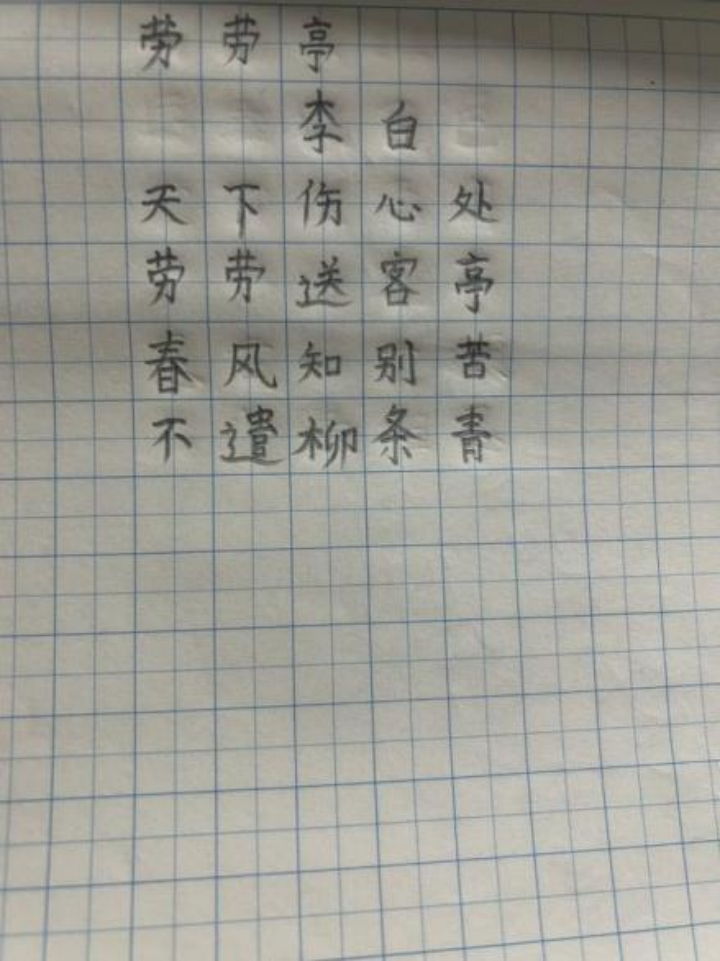 劳劳亭
李白
天下伤心处
劳劳送客亭
春风知别苦
不遣柳条青